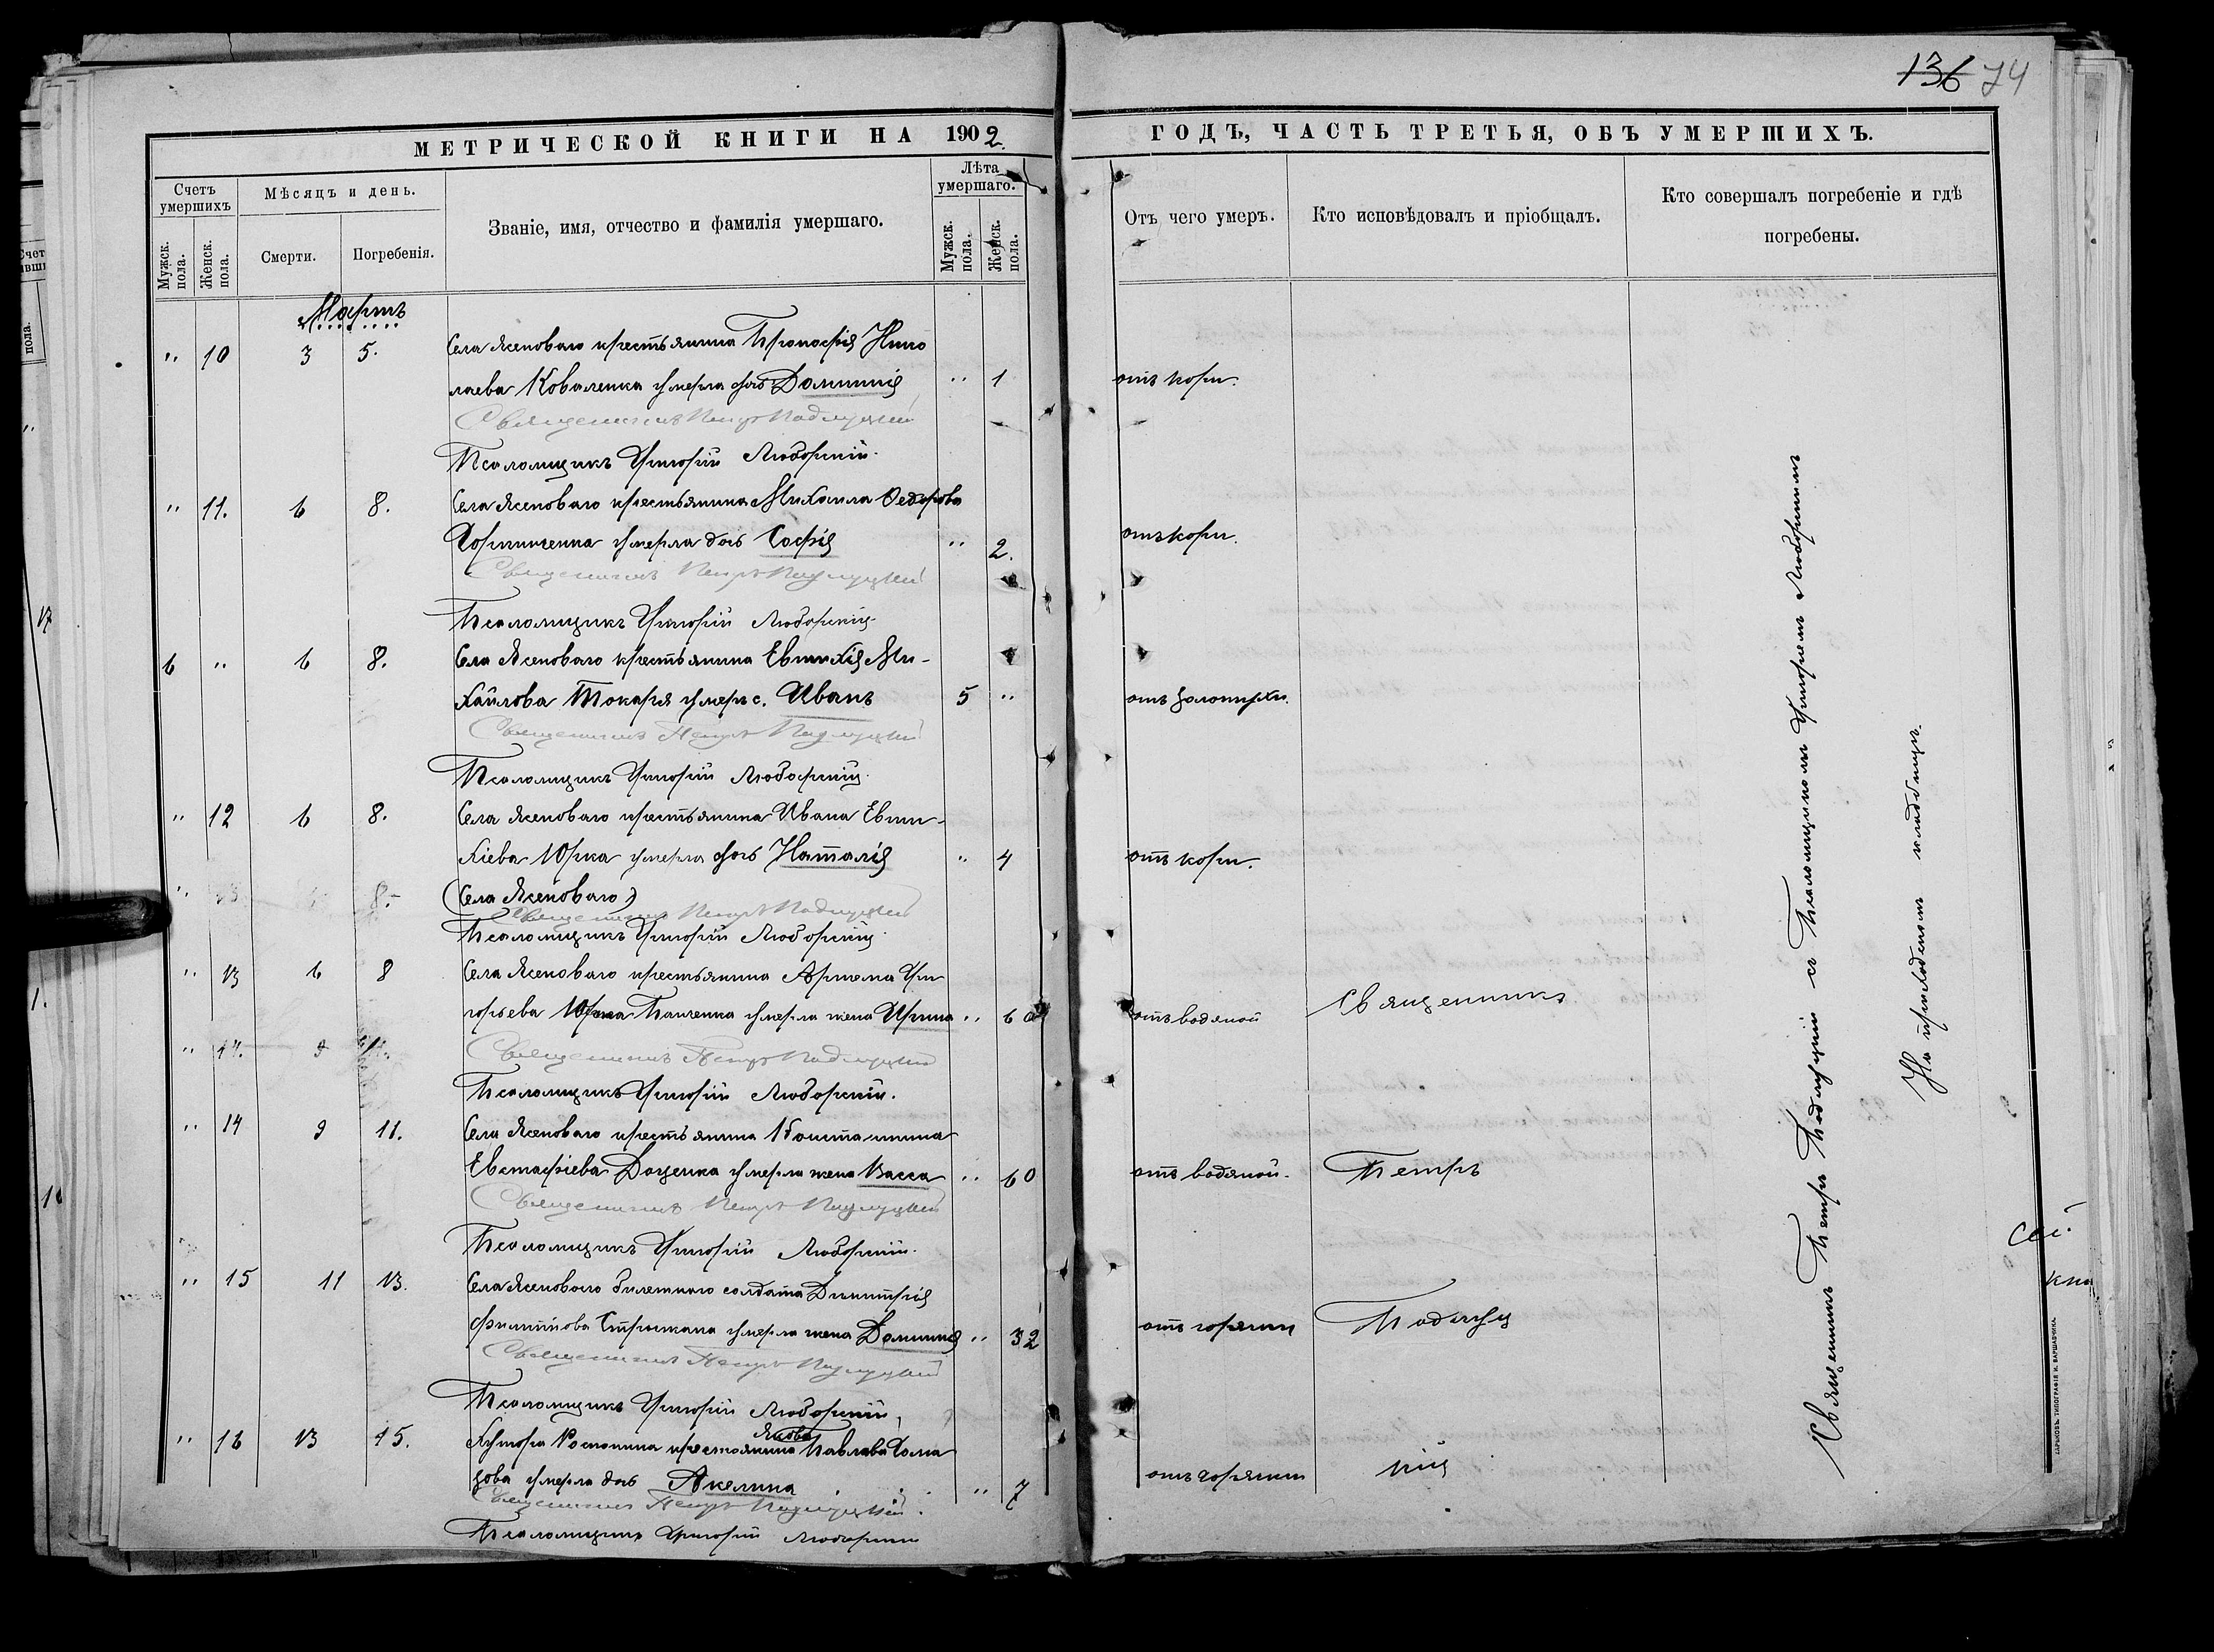 136 74
МЕТРИЧЕСКОЙ КНИГИ НА 1902.
ГОДЪ, ЧАСТЬ ТРЕТЬЯ, ОБЪ УМЕРШИХЪ.
Счетъ умершихъ
Мужск. пола.
Женск. пола.
Мѣсяцъ и день.
Смерти.
Погребенія.
Званіе, имя, отчество и фамилія умершаго.
Лѣта умершаго.
Мужск. пола.
Женск. пола.
Отъ чего умеръ.
Кто исповѣдовалъ и пріобщалъ.
Кто совершалъ погребеніе и гдѣ погребены.
Мартъ
" 10 3 5. Села Ясеноваго крестьянина Прокофія Нико
лаева Коваленка умерла дочь Домникія " 1 отъ кори.
Священникъ Петръ Подлуцкій
Псаломщикъ Григорій Люборскій.
" 11. 6 8. Села Ясеноваго крестьянина Михаила Ѳедорова
умерла дочь Софія " 2. отъ кори.
Священникъ Петръ Подлуцкій
Псаломщикъ Григорій Люборскій
6 " 6 8. Села Ясеноваго крестьянина Евтихія Ми-
хайлова Токаря умеръ с. Иванъ 5 " отъ золотухи.
Священникъ Петръ Подлуцкій
Псаломщикъ Григорій Люборскій.
" 12 6 8. Села Ясеноваго крестьянина Ивана Евти-
хіева Юрка умерла дочь Наталія " 4 отъ кори.
" 13 8. (Села Ясеноваго)
Священникъ Петръ Подлуцкій
Псаломщикъ Григорій Люборскій.
" 13 6 8 Села Ясеноваго крестьянина Артема Гри
горьева Панченка умерла жена Ирина " 60 отъ водяной Священникъ
" 14. 9 11.
Священникъ Петръ Подлуцкій
Псаломщикъ Григорій Люборскій.
" 14 9 11. Села Ясеноваго крестьянина Константина
Евстафіева Доценка умерла жена Васса " 60 отъ водяной. Петръ
Священникъ Петръ Подлуцкій
Псаломщикъ Григорій Люборскій.
" 15 11 13. Села Ясеноваго билетнаго солдата Димитрія
Филиппова умерла жена Домникія " 32 отъ горячки Подлуц
Священникъ Петръ Подлуцкій
Псаломщикъ Григорій Люборскій,
" 16 13 15. Хутора крестьянина Якова Павлова
умерла дочь Акелина " 7 отъ горячки кій
Священникъ Петръ Подлуцкій.
Псаломщикъ Григорій Люборскій
Священникъ Петръ Подлуцкій съ Псаломщикомъ Григоріемъ Люборскимъ
На приходскомъ кладбищѣ.
ХАРЬКОВЪ. ТИПОГРАФІЯ И. ВАРШАВЧИКА.